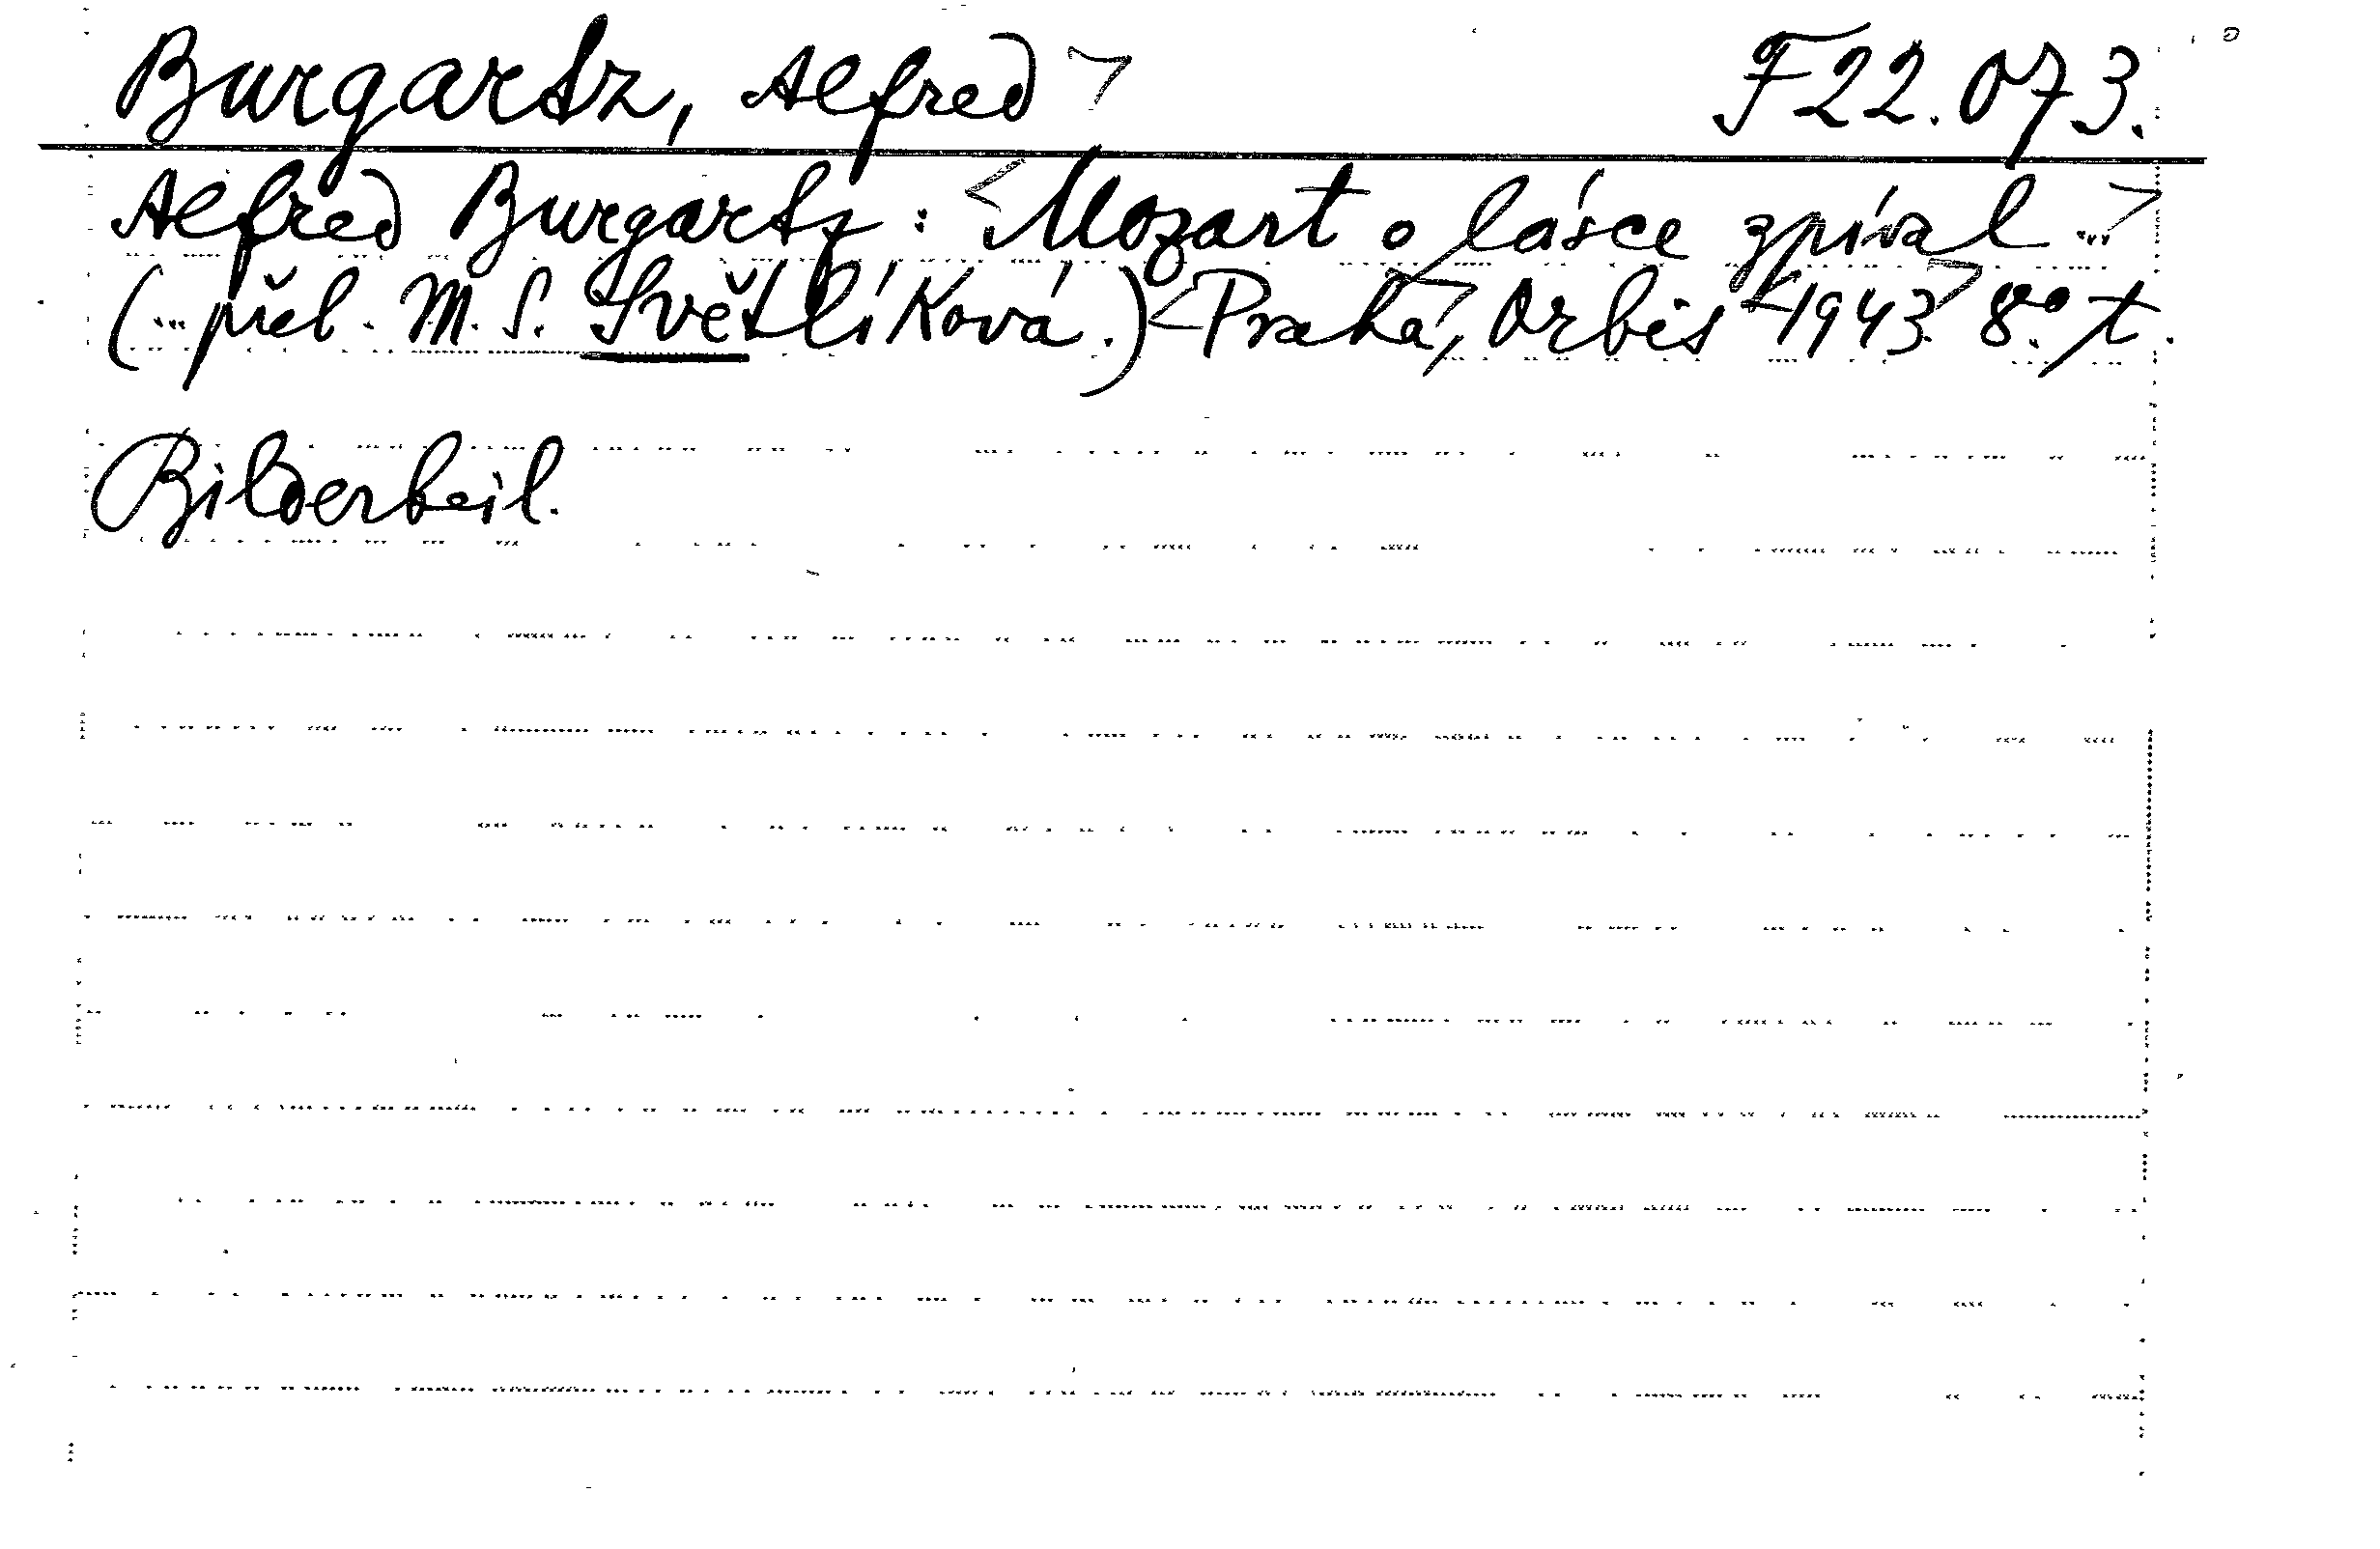 Burgartz, Alfred> F22.073.
Alfred Burgartz: <Mozart o lásce zpíval...>
(...přel. M. S. Světlíková.) <Praha>, Orbis <1943> 8° t.
Bilderbeil.